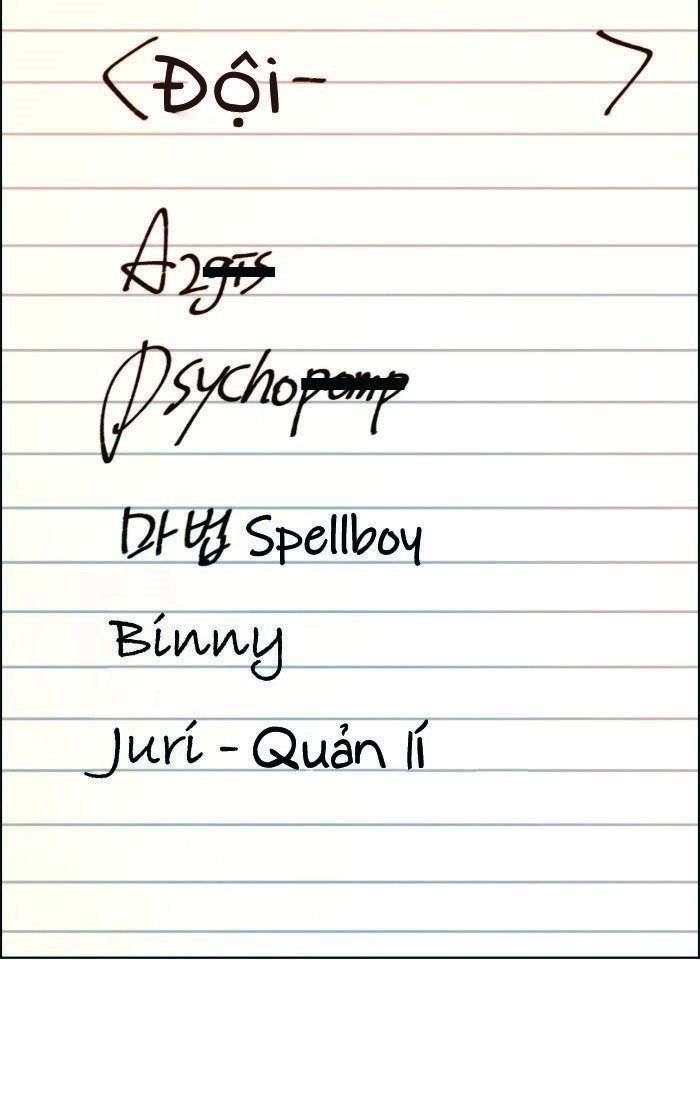 <Đội- >
A2gis
Psychopomp
마법 Spellboy
Binny
Juri - Quản lí